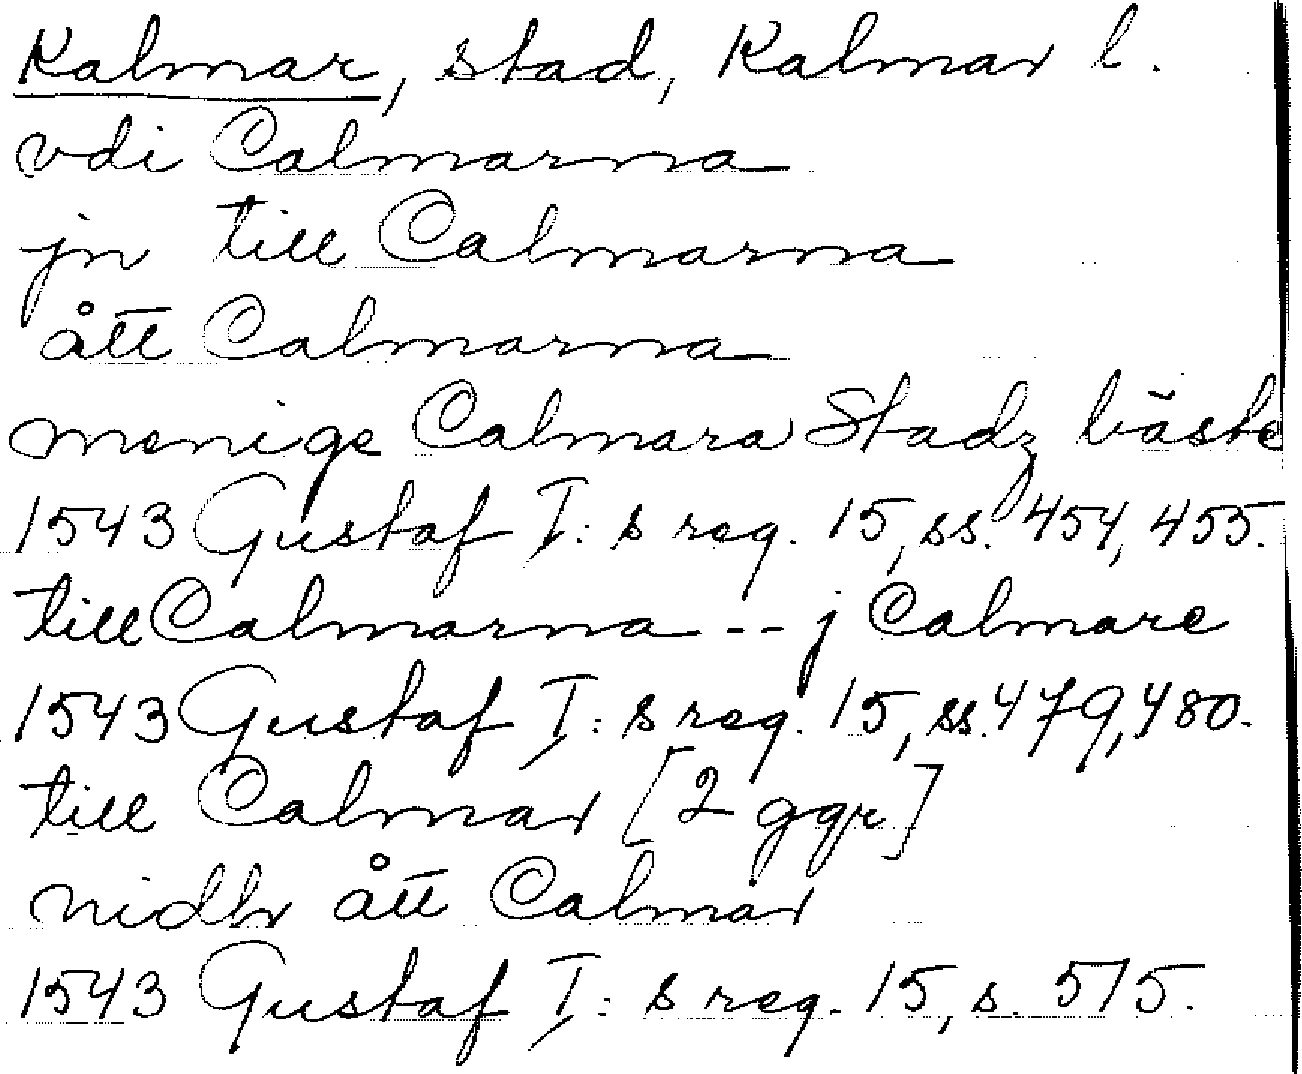 Kalmar, stad, Kalmar l.
vdi Calmarna
jn till Calmarna
ått Calmarna
menige Calmara Stadz bäste
1543 Gustaf I:s reg. 15, ss. 454, 455.
till Calmarna -- j Calmare
1543 Gustaf I:s reg. 15, ss. 479, 480.
till Calmar [2 ggr]
nidh ått Calmar
1543 Gustaf I:s reg. 15, s. 515.